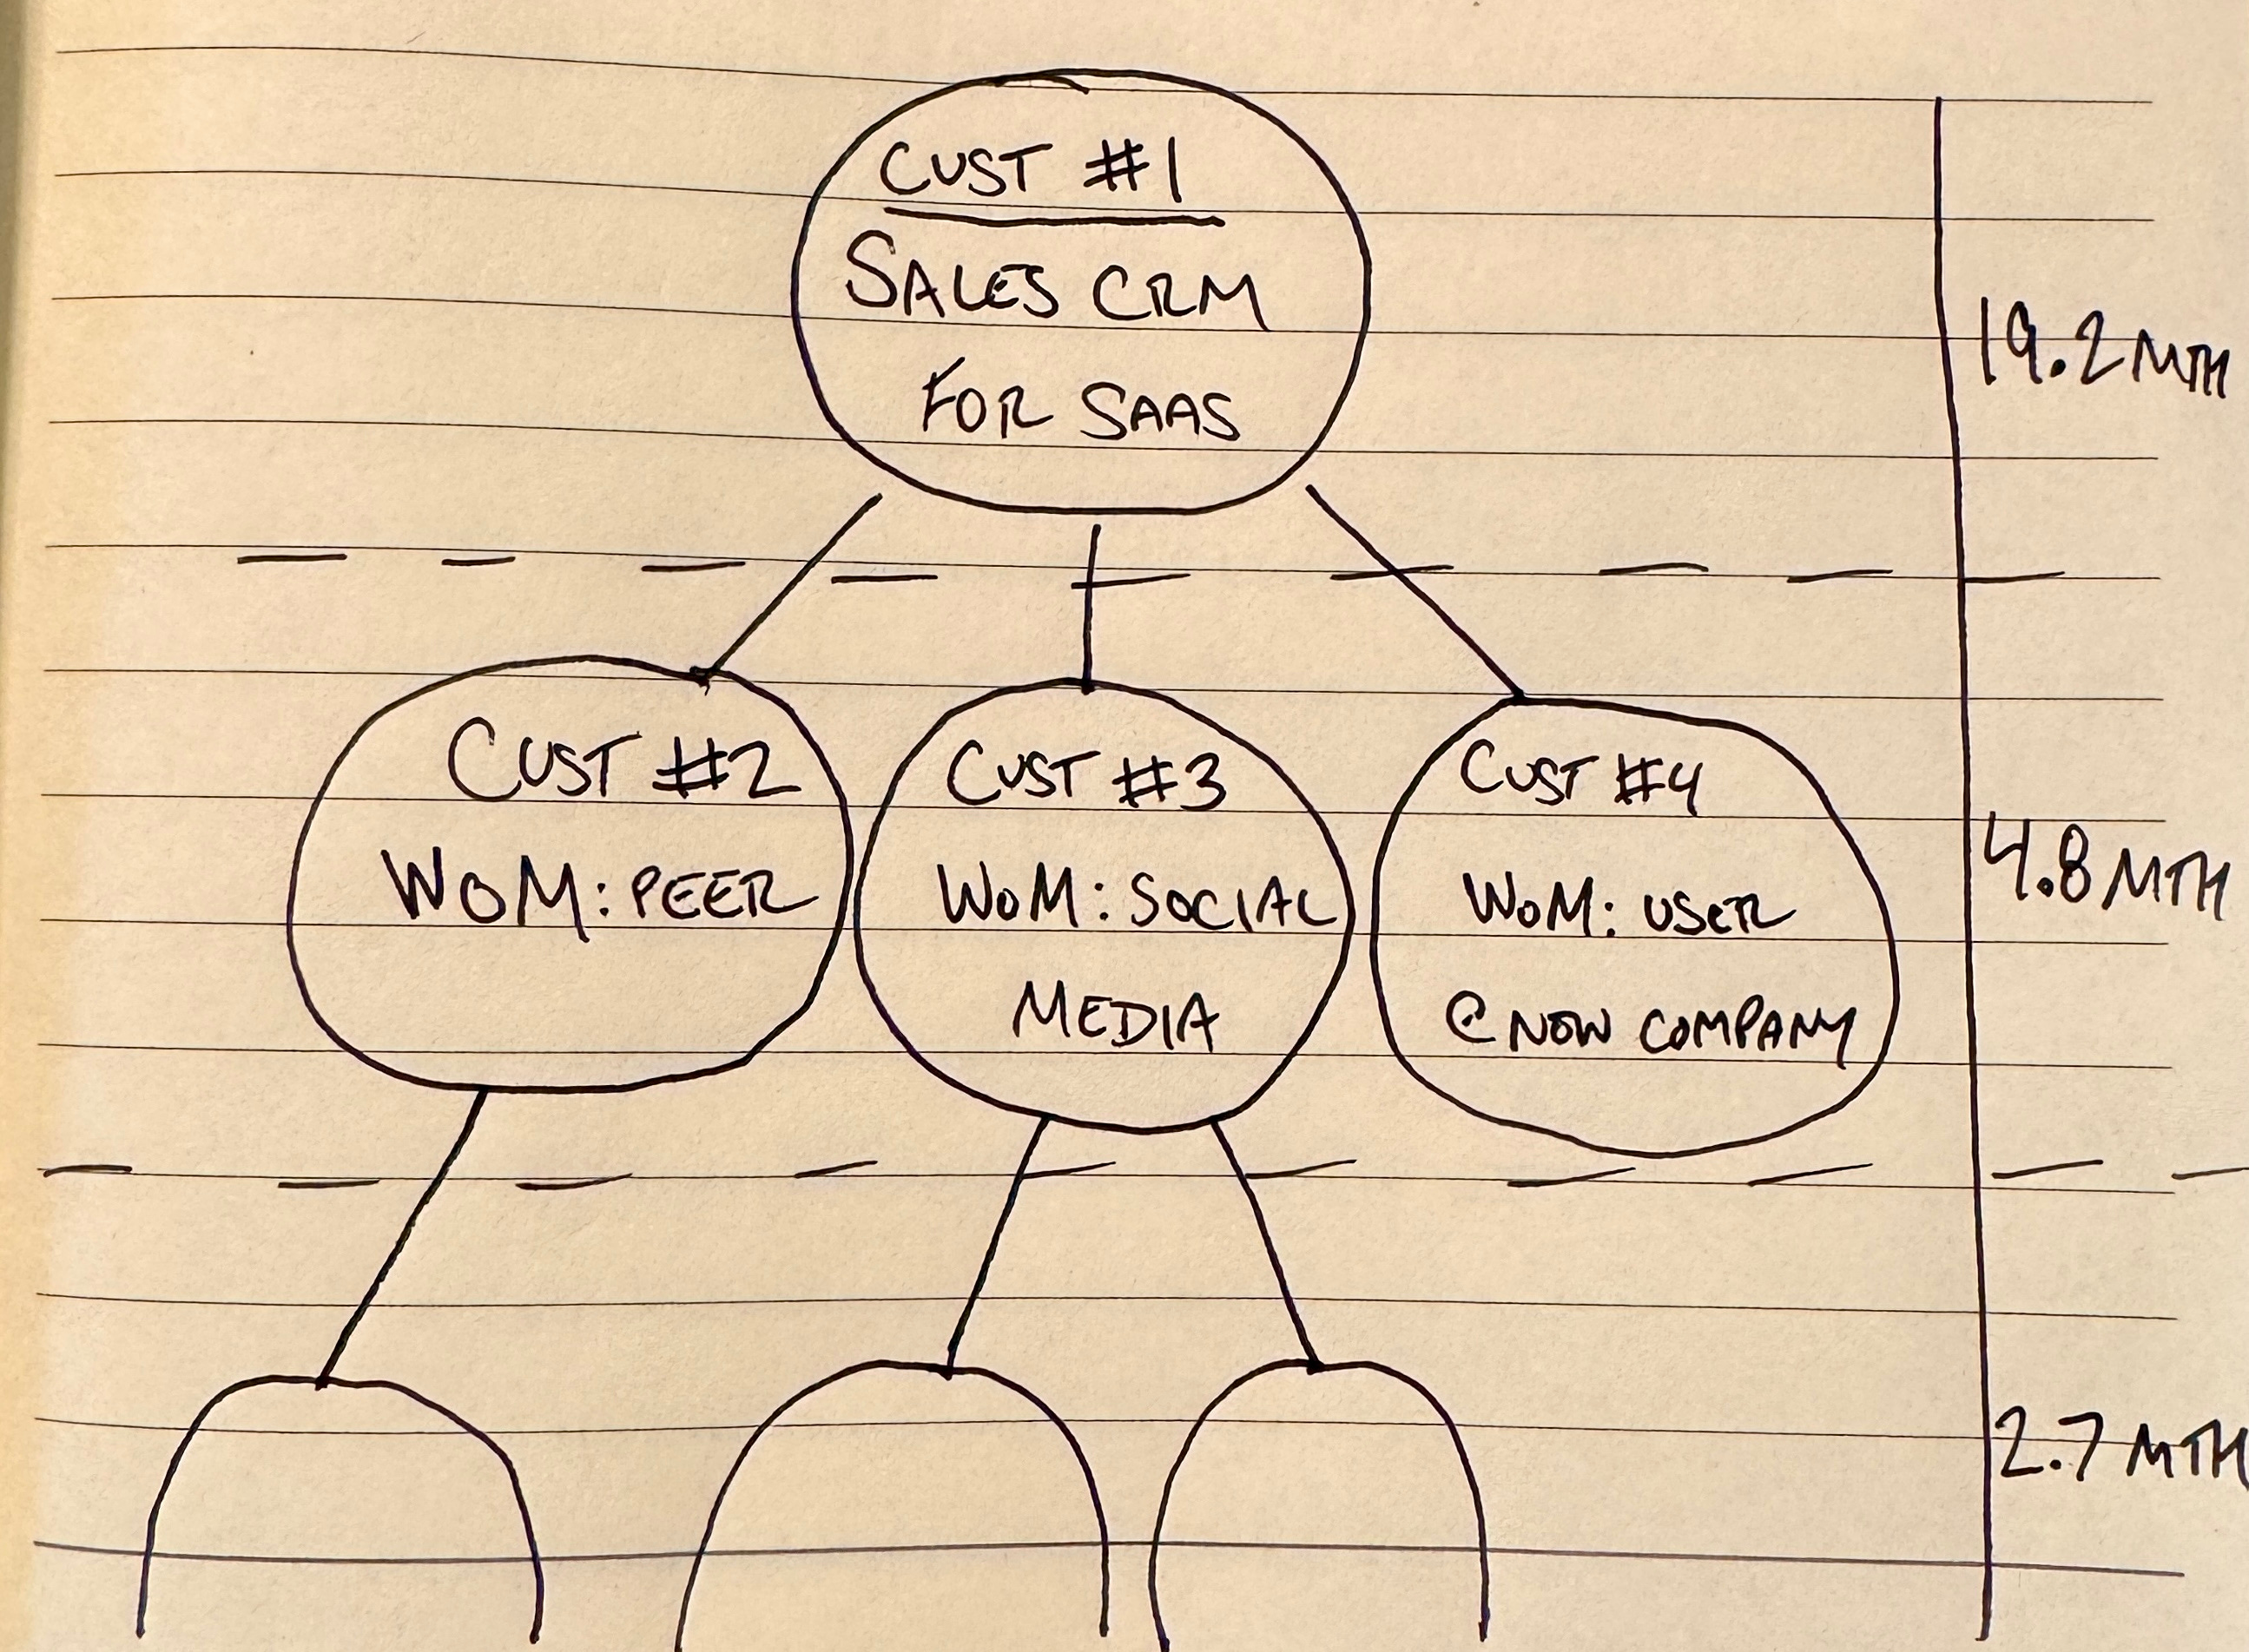 CUST #1
SALES CRM
FOR SAAS
19.2 MTH
CUST #2
WOM: PEER
CUST #3
WOM: SOCIAL
MEDIA
CUST #4
WOM: USER
@ NEW COMPANY
4.8 MTH
2.7 MTH